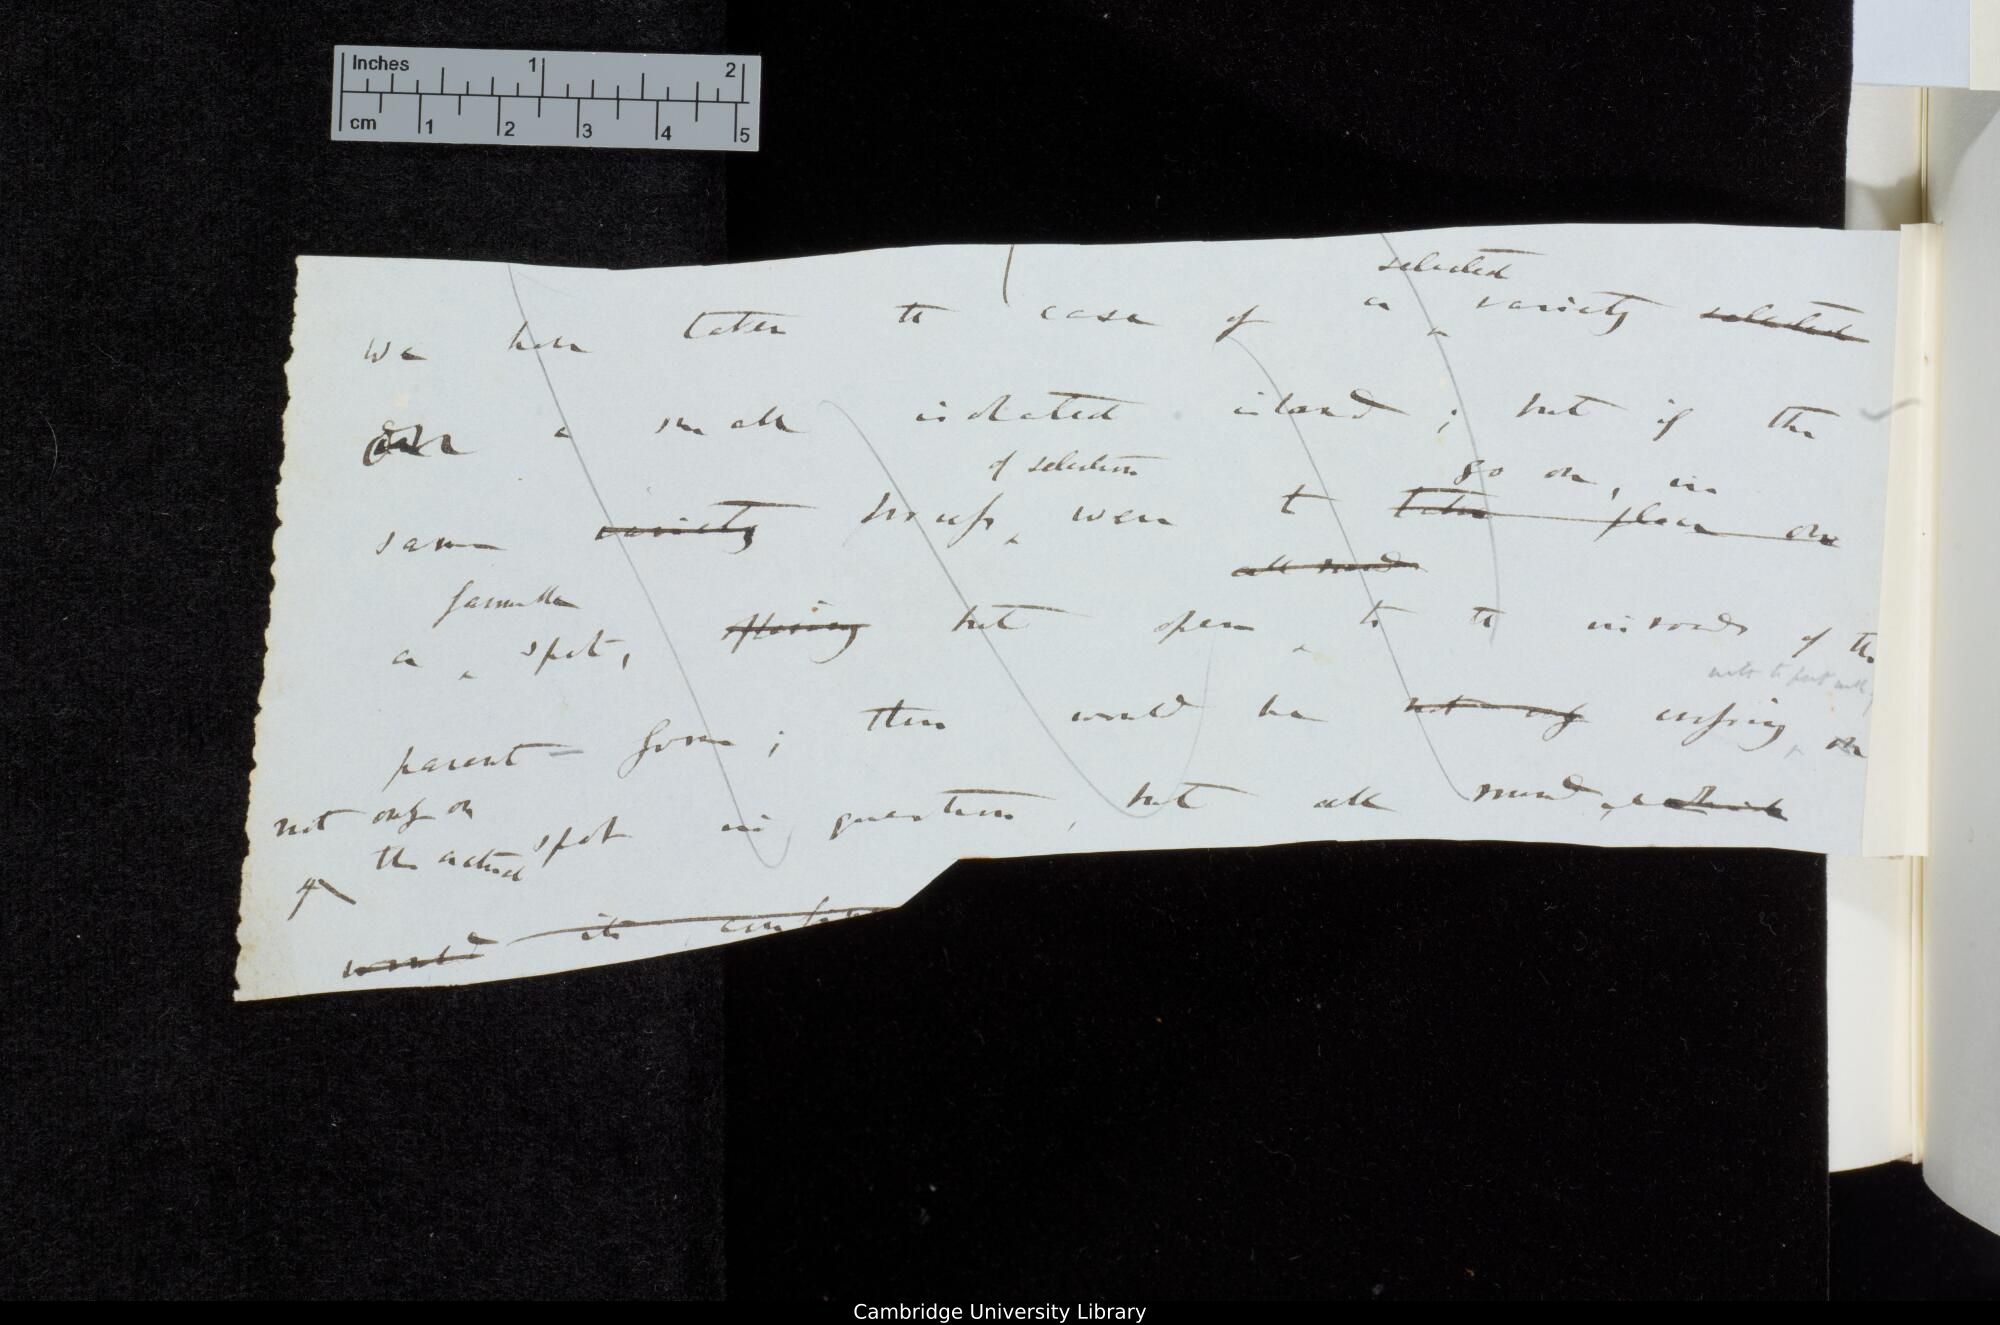 Inches 1 2
cm 1 2 3 4 5
selected
We have taken the case of a variety selected
on a small isolated island; but if the
of selection go on, in
same variety process were to take place on
all round
favourable
a spot, but open to the inroads of the
parent-form; there would be not only crossing, on
not only on
the actual spot in question, but all round,
would its
Cambridge University Library